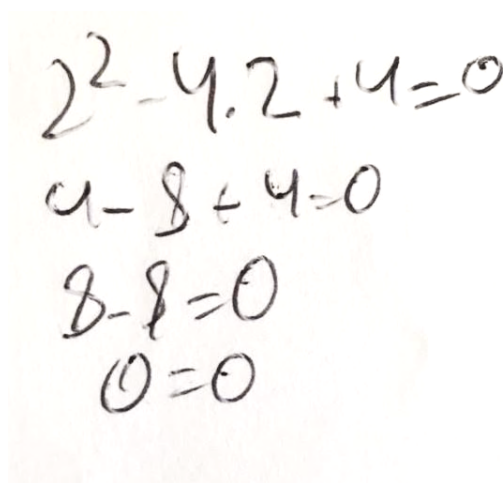 2² - 4.2 + 4 = 0
4 - 8 + 4 = 0
8 - 8 = 0
0 = 0